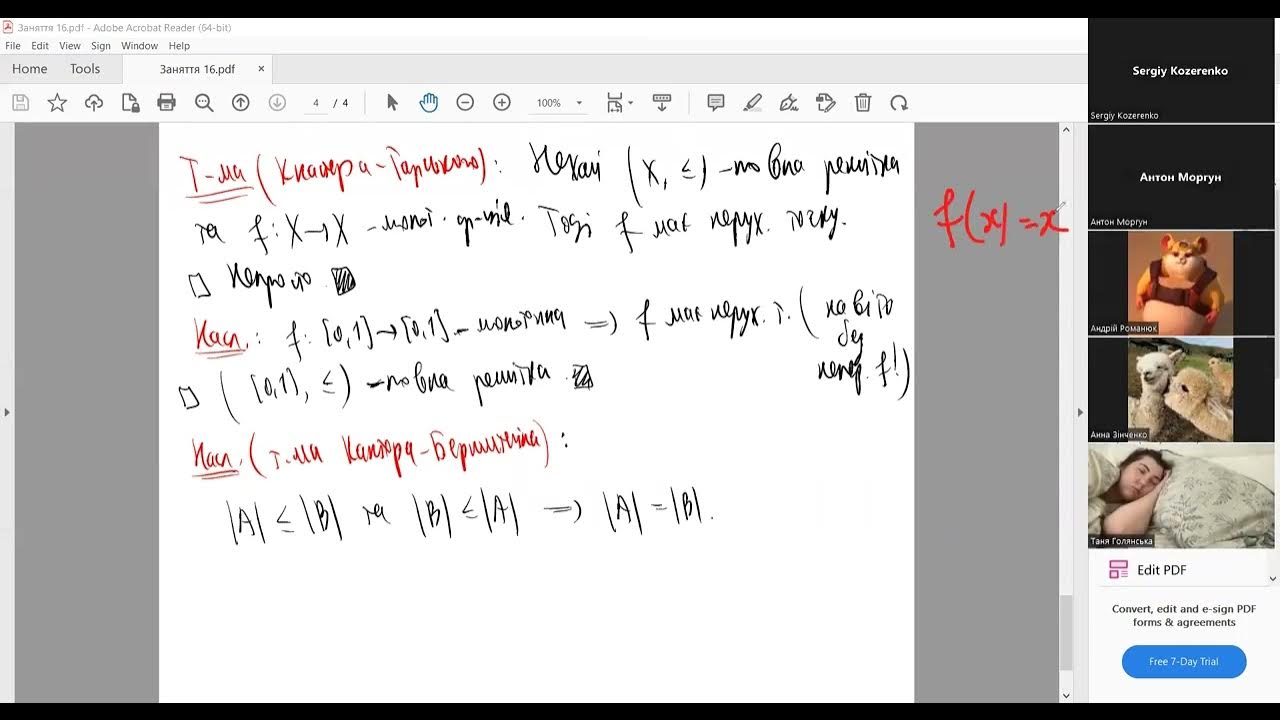 Заняття 16.pdf - Adobe Acrobat Reader (64-bit)
File Edit View Sign Window Help
Home Tools Заняття 16.pdf ×
4 / 4 100%
Т-ма (Кнастера-Тарського): Нехай (X, ≤) – повна решітка
та f: X → X – монот. ф-ція. Тоді f має нерух. точку.
f(x) = x
□ Непросто
Насл.: f: [0,1] → [0,1] – монотонна ⇒ f має нерух. т. (навіть
без
непер. f!)
□ ([0,1], ≤) – повна решітка
Насл. (т-ма Кантора-Бернштейна):
|A| ≤ |B| та |B| ≤ |A| ⇒ |A| = |B|.
Sergiy Kozerenko
Sergiy Kozerenko
Антон Моргун
Антон Моргун
Андрій Романюк
Анна Зінченко
Таня Голянська
Edit PDF
Convert, edit and e-sign PDF
forms & agreements
Free 7-Day Trial